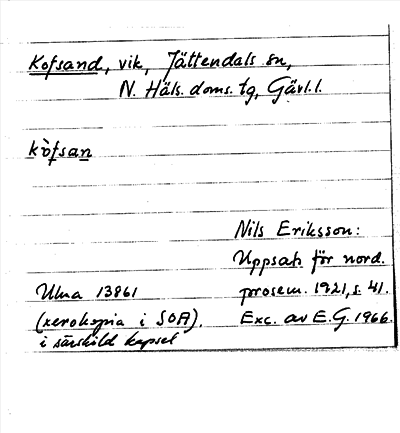 Kofsand, vik, Jättendals sn,
N. Häls. doms. tg, Gävl. l.
kòfsan
Nils Eriksson:
Uppsats för nord.
prosem. 1921, s. 41.
Exc. av E.G. 1966.
Ulma 13861
(xerokopia i SOA).
i särskild kapsel